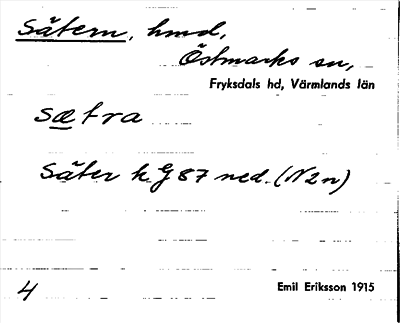 Sätern, hmd,
Östmarks sn,
Fryksdals hd, Värmlands län
sætra
Säter k. G 87 ned. (N2n)
4
Emil Eriksson 1915